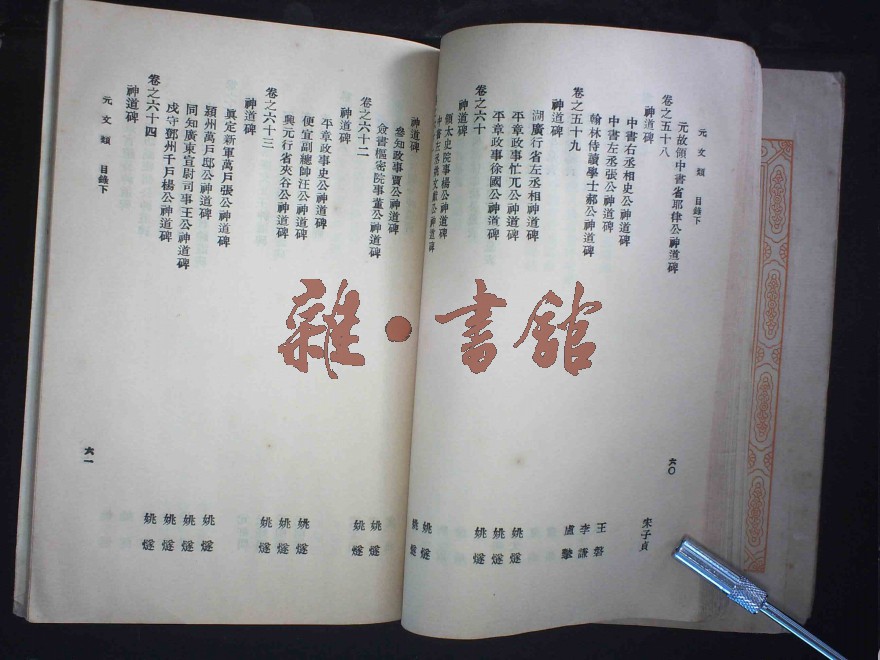 元文類 目錄下
元故領中書省耶律公神道碑 宋子貞
卷之五十八
神道碑
中書右丞相史公神道碑 王磐
中書左丞張公神道碑 李謙
翰林侍讀學士郝公神道碑 盧摯
卷之五十九
神道碑
湖廣行省左丞相神道碑 姚燧
平章政事忙兀公神道碑 姚燧
平章政事徐國公神道碑 姚燧
卷之六十
神道碑
領太史院事楊公神道碑 姚燧
中書左丞文獻公神道碑 姚燧
六〇
神道碑
參知政事賈公神道碑 姚燧
僉書樞密院事董公神道碑 姚燧
卷之六十二
神道碑
平章政事史公神道碑 姚燧
便宜副總帥汪公神道碑 姚燧
興元行省夾谷公神道碑 姚燧
卷之六十三
神道碑
眞定新軍萬戶張公神道碑 姚燧
潁州萬戶邸公神道碑 姚燧
同知廣東宣尉司事王公神道碑 姚燧
戍守鄧州千戶楊公神道碑 姚燧
卷之六十四
神道碑
元文類 目錄下
六一
雜·書館